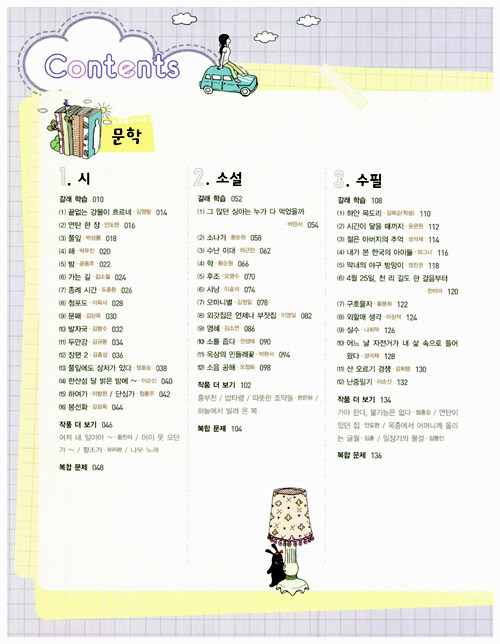 Contents
문학
1. 시
갈래 학습 010
(1) 끝없는 강물이 흐르네 · 김영랑 014
(2) 연탄 한 장 · 안도현 016
(3) 풀잎 · 박성룡 018
(4) 해 · 박두진 020
(5) 밤 · 윤동주 022
(6) 가는 길 · 김소월 024
(7) 종례 시간 · 도종환 026
(8) 청포도 · 이육사 028
(9) 문패 · 030
(10) 발자국 · 김명수 032
(11) 두만강 · 김규동 034
(12) 잠편 2 · 036
(13) 풀잎에도 상처가 있다 · 정호승 038
(14) 한산섬 달 밝은 밤에 ~ · 이순신 040
(15) 하여가 · 이방원 / 단심가 · 정몽주 042
(16) 봉선화 · 김상옥 044
작품 더 보기 046
어져 내 일이야 ~ · 황진이 / 어이 못 오던
가 ~ / 황조가 · 유리왕 / 나무 노래
복합 문제 048
2. 소설
갈래 학습 052
(1) 그 많던 싱아는 누가 다 먹었을까
· 박완서 054
(2) 소나기 · 황순원 058
(3) 수난 이대 · 하근찬 062
(4) 학 · 황순원 066
(5) 후조 · 오영수 070
(6) 사냥 · 이효석 074
(7) 오마니별 · 김원일 078
(8) 외갓집은 언제나 부잣집 · 082
(9) 명혜 · 김소연 086
(10) 소를 줍다 · 전성태 090
(11) 옥상의 민들레꽃 · 박완서 094
(12) 소음 공해 · 오정희 098
작품 더 보기 102
흥부전 / 밥타령 / 따뜻한 조약돌 /
하늘에서 빌려 온 복
복합 문제 104
3. 수필
갈래 학습 108
(1) 하얀 목도리 · 110
(2) 시간이 닿을 때까지 · 112
(3) 젊은 아버지의 추억 · 성석제 114
(4) 내가 본 한국의 아이들 · 116
(5) 막내의 야구 방망이 · 정진권 118
(6) 4월 25일, 천 리 길도 한 걸음부터
· 한비야 120
(7) 구호물자 · 122
(8) 외할매 생각 · 124
(9) 실수 · 나희덕 126
(10) 어느 날 자전거가 내 삶 속으로 들어
왔다 · 성석제 128
(11) 산 오르기 경쟁 · 130
(12) 난중일기 · 이순신 132
작품 더 보기 134
가야 한다, 불가능은 없다 · 엄홍길 / 연탄이
있던 집 · 안도현 / 옥중에서 어머니께 올리
는 글월 · 심훈 / 일장기의 물결 · 김동인
복합 문제 136